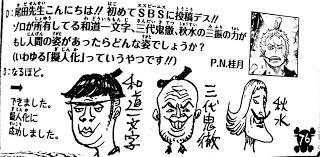 D:尾田先生こんにちは!! 初めてSBSに投稿デス!!
ゾロが所有してる和道一文字、三代鬼徹、秋水の三振の刀が
もし人間の姿があったらどんな姿でしょうか?
(いわゆる「擬人化」っていうやつです!!)
P.N.桂月
D:なるほど。
→
下きました。
擬人化に
成功しました。
和道一文字
三代鬼徹
秋水
76